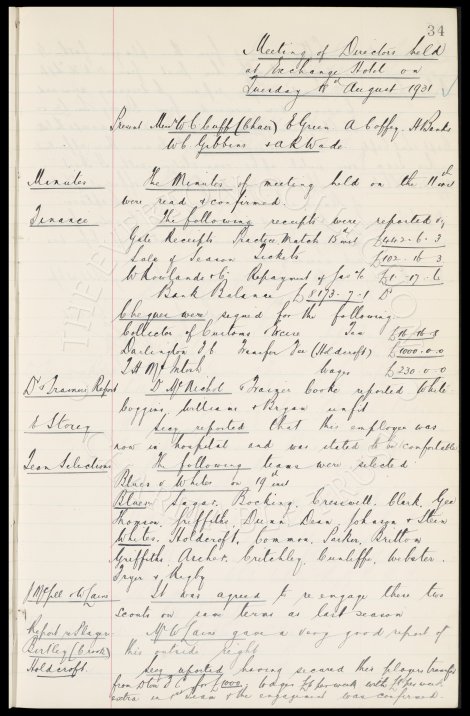 34
Meeting of Directors held
at Exchange Hotel on
Tuesday 18th August 1931
Present Messrs W C Cuff (Chair) E Green A Coffey H Banks
W C Gibbins & A R Wade.
Minutes The Minutes of meeting held on the 11th inst
were read & confirmed.
Finance The following receipts were reported
Gate Receipts Practice Match 15th inst £442-6-3
Sale of Season Tickets £102-16-3
W Rowlands & Co Repayment of £1-17-6
Bank Balance £8173-7-1 Dr
Cheques were signed for the following
Collector of Customs & Excise Tax £16-16-8
Darlington F C Transfer Fee (Holdcroft) £1000-0-0
T H McIntosh Wages £230-0-0
Drs & Trainers Report Dr McNichol & Trainer Cooke reported White
Coggins, Williams & Bryan unfit
C Storey Secy reported that this employee was
now in hospital and was stated to be comfortable
Team Selections The following teams were selected
Blues v Whites on 19th inst
Blues Sagar, Bocking, Cresswell, Clark, Gee
Thomson, Griffiths, Dunn, Dean, Johnson & Stein
Whites. Holdcroft, Common, Parker, Britton
Griffiths, Archer, Critchley, Cunliffe, Webster.
Fryer & Rigby
It was agreed to re engage these two
Scouts on same terms as last season
Report re Player Mr W gave a very good report of
this outside right
Holdcroft. Secy reported having secured this players transfer
from D'ton F C for £1000. Wages per week with per week
extra in 1st team & the engagement was confirmed.